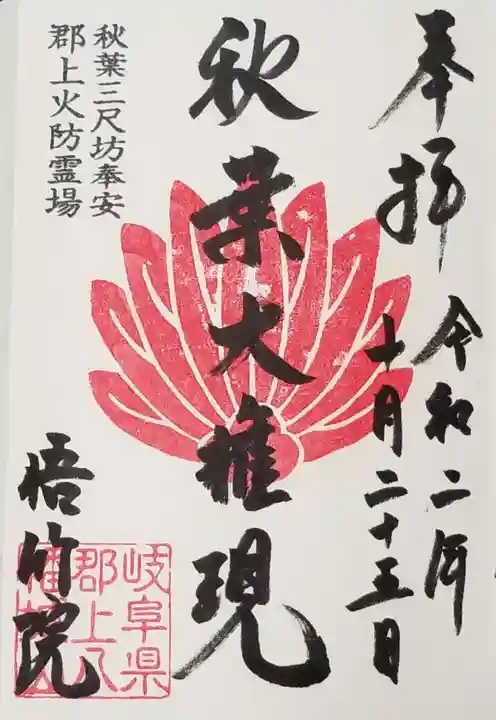 奉拝
令和二年
十月二十五日
秋葉大権現
秋葉三尺坊奉安
郡上火防霊場
悟竹院
岐阜県
郡上八